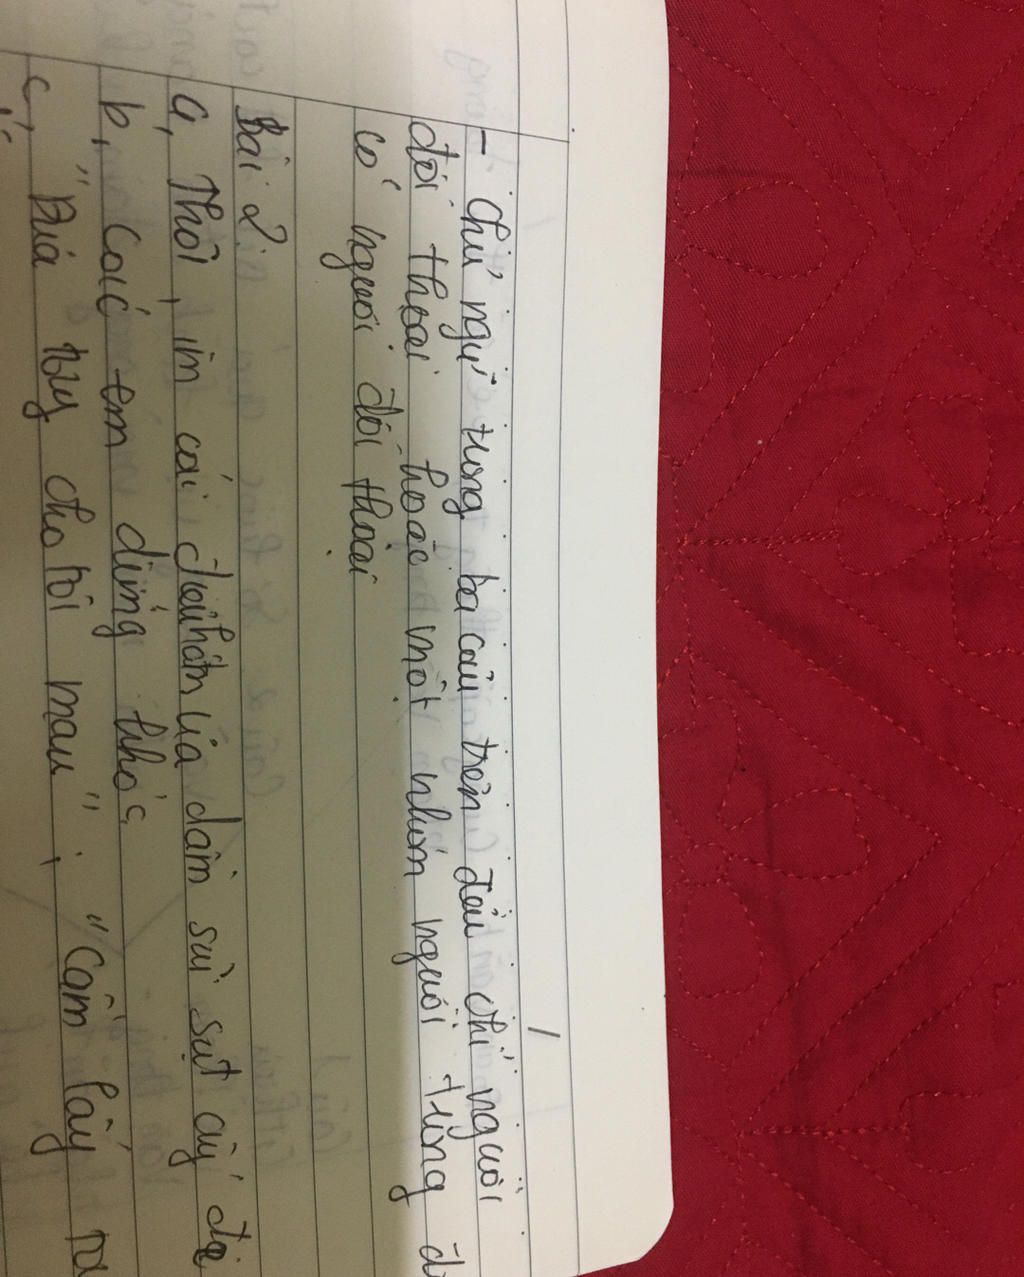 - Chủ ngữ trong ba câu trên đều chỉ người
đối thoại hoặc một nhóm người trong
có người đối thoại
Bài 2
a, Thôi, im cái điệu hát mưa dầm sùi sụt ấy đi
b, Các em đừng khóc
c, "Đưa tay cho tôi mau"; "Cầm lấy